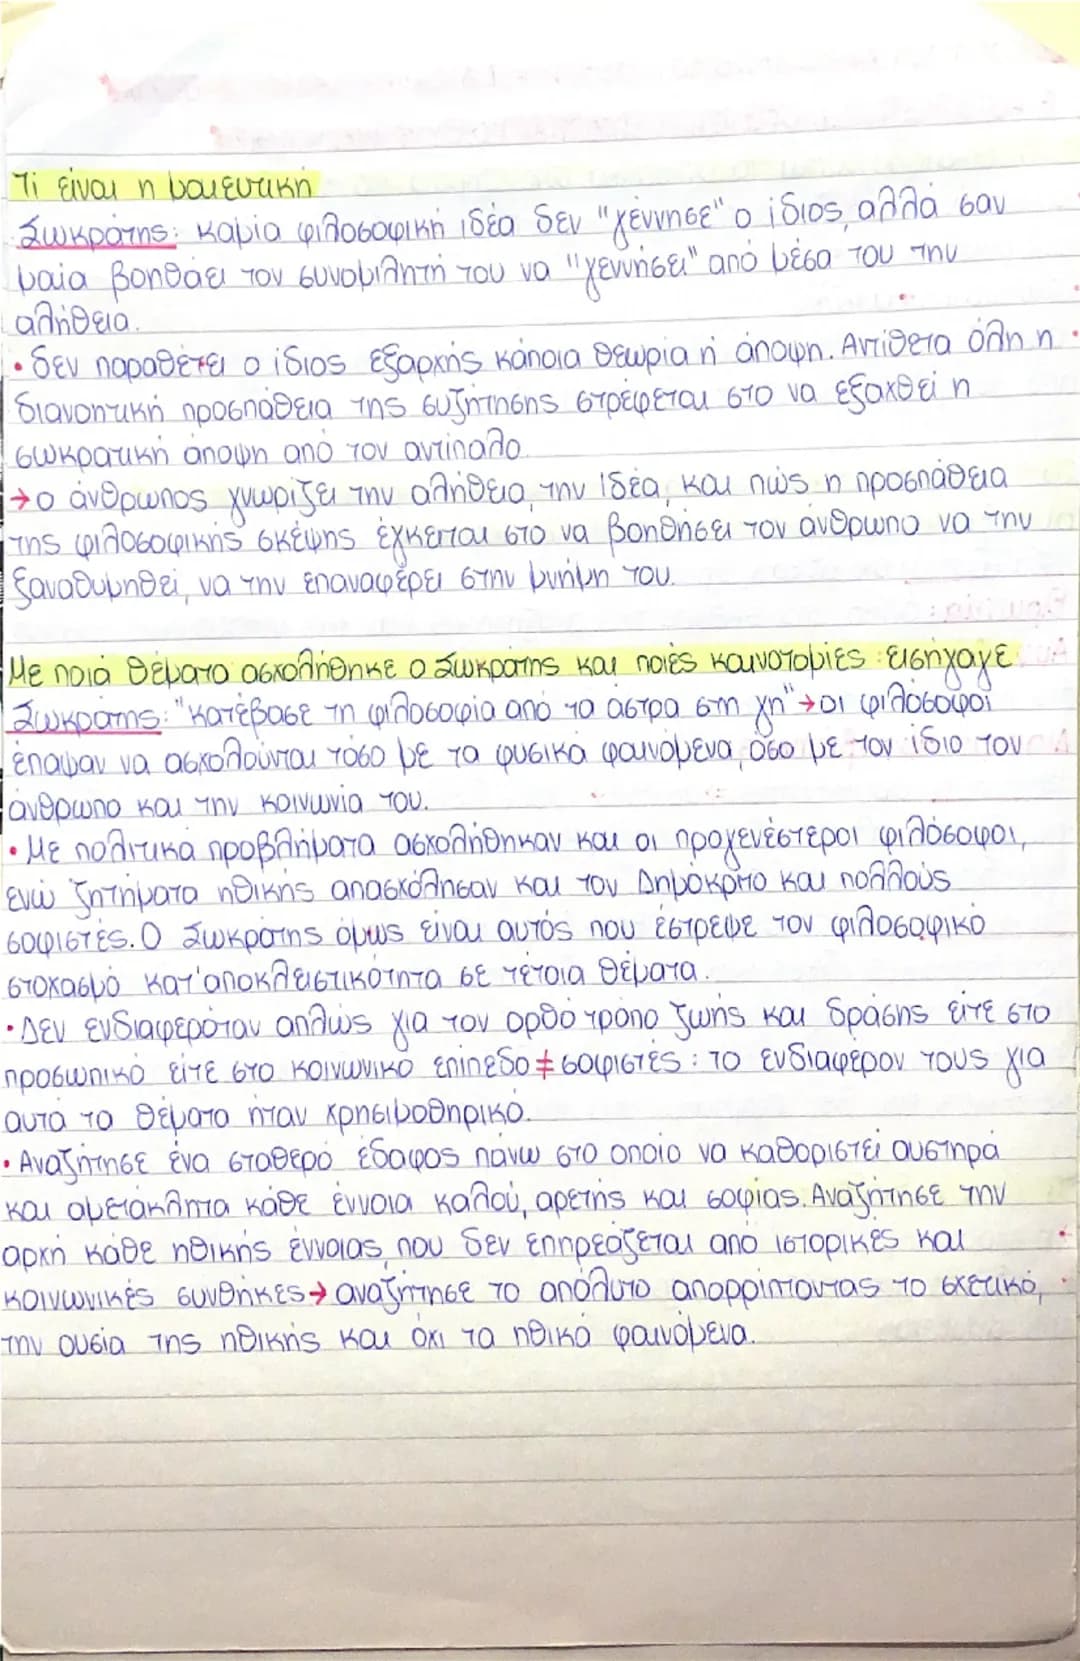 Τι είναι η μαιευτική
Σωκράτης: καμία φιλοσοφική ιδέα δεν "γέννησε" ο ίδιος, αλλά σαν
μαία βοηθάει τον συνομιλητή του να "γεννήσει" από μέσα του την
αλήθεια.
• δεν παραθέτει ο ίδιος εξαρχής κάποια θεωρία ή άποψη. Αντίθετα όλη η
διανοητική προσπάθεια της συζήτησης στρέφεται στο να εξαχθεί η
σωκρατική άποψη από τον αντίπαλο.
→ ο άνθρωπος γνωρίζει την αλήθεια, την Ιδέα, και πώς η προσπάθεια
της φιλοσοφικής σκέψης έγκειται στο να βοηθήσει τον άνθρωπο να την
ξαναθυμηθεί, να την επαναφέρει στην μνήμη του.
Με ποιά θέματα ασχολήθηκε ο Σωκράτης και ποιές καινοτομίες εισήγαγε
Σωκράτης: "κατέβασε τη φιλοσοφία από τα άστρα στη γη" → οι φιλόσοφοι
έπαψαν να ασχολούνται τόσο με τα φυσικά φαινόμενα, όσο με τον ίδιο τον
άνθρωπο και την κοινωνία του.
• Με πολιτικά προβλήματα ασχολήθηκαν και οι προγενέστεροι φιλόσοφοι,
ενώ ζητήματα ηθικής απασχόλησαν και τον Δημόκριτο και πολλούς
σοφιστές. Ο Σωκράτης όμως είναι αυτός που έστρεψε τον φιλοσοφικό
στοχασμό κατ'αποκλειστικότητα σε τέτοια θέματα.
• Δεν ενδιαφερόταν απλώς για τον ορθό τρόπο ζωής και δράσης είτε στο
προσωπικό είτε στο κοινωνικό επίπεδο ≠ σοφιστές: το ενδιαφέρον τους για
αυτά τα θέματα ήταν χρησιμοθηρικό.
• Αναζήτησε ένα σταθερό έδαφος πάνω στο οποίο να καθοριστεί αυστηρά
και αμετάκλητα κάθε έννοια καλού, αρετής και σοφίας. Αναζήτησε την
αρχή κάθε ηθικής έννοιας, που δεν επηρεάζεται από ιστορικές και
κοινωνικές συνθήκες → αναζήτησε το απόλυτο απορρίπτοντας το σχετικό,
την ουσία της ηθικής και όχι τα ηθικά φαινόμενα.